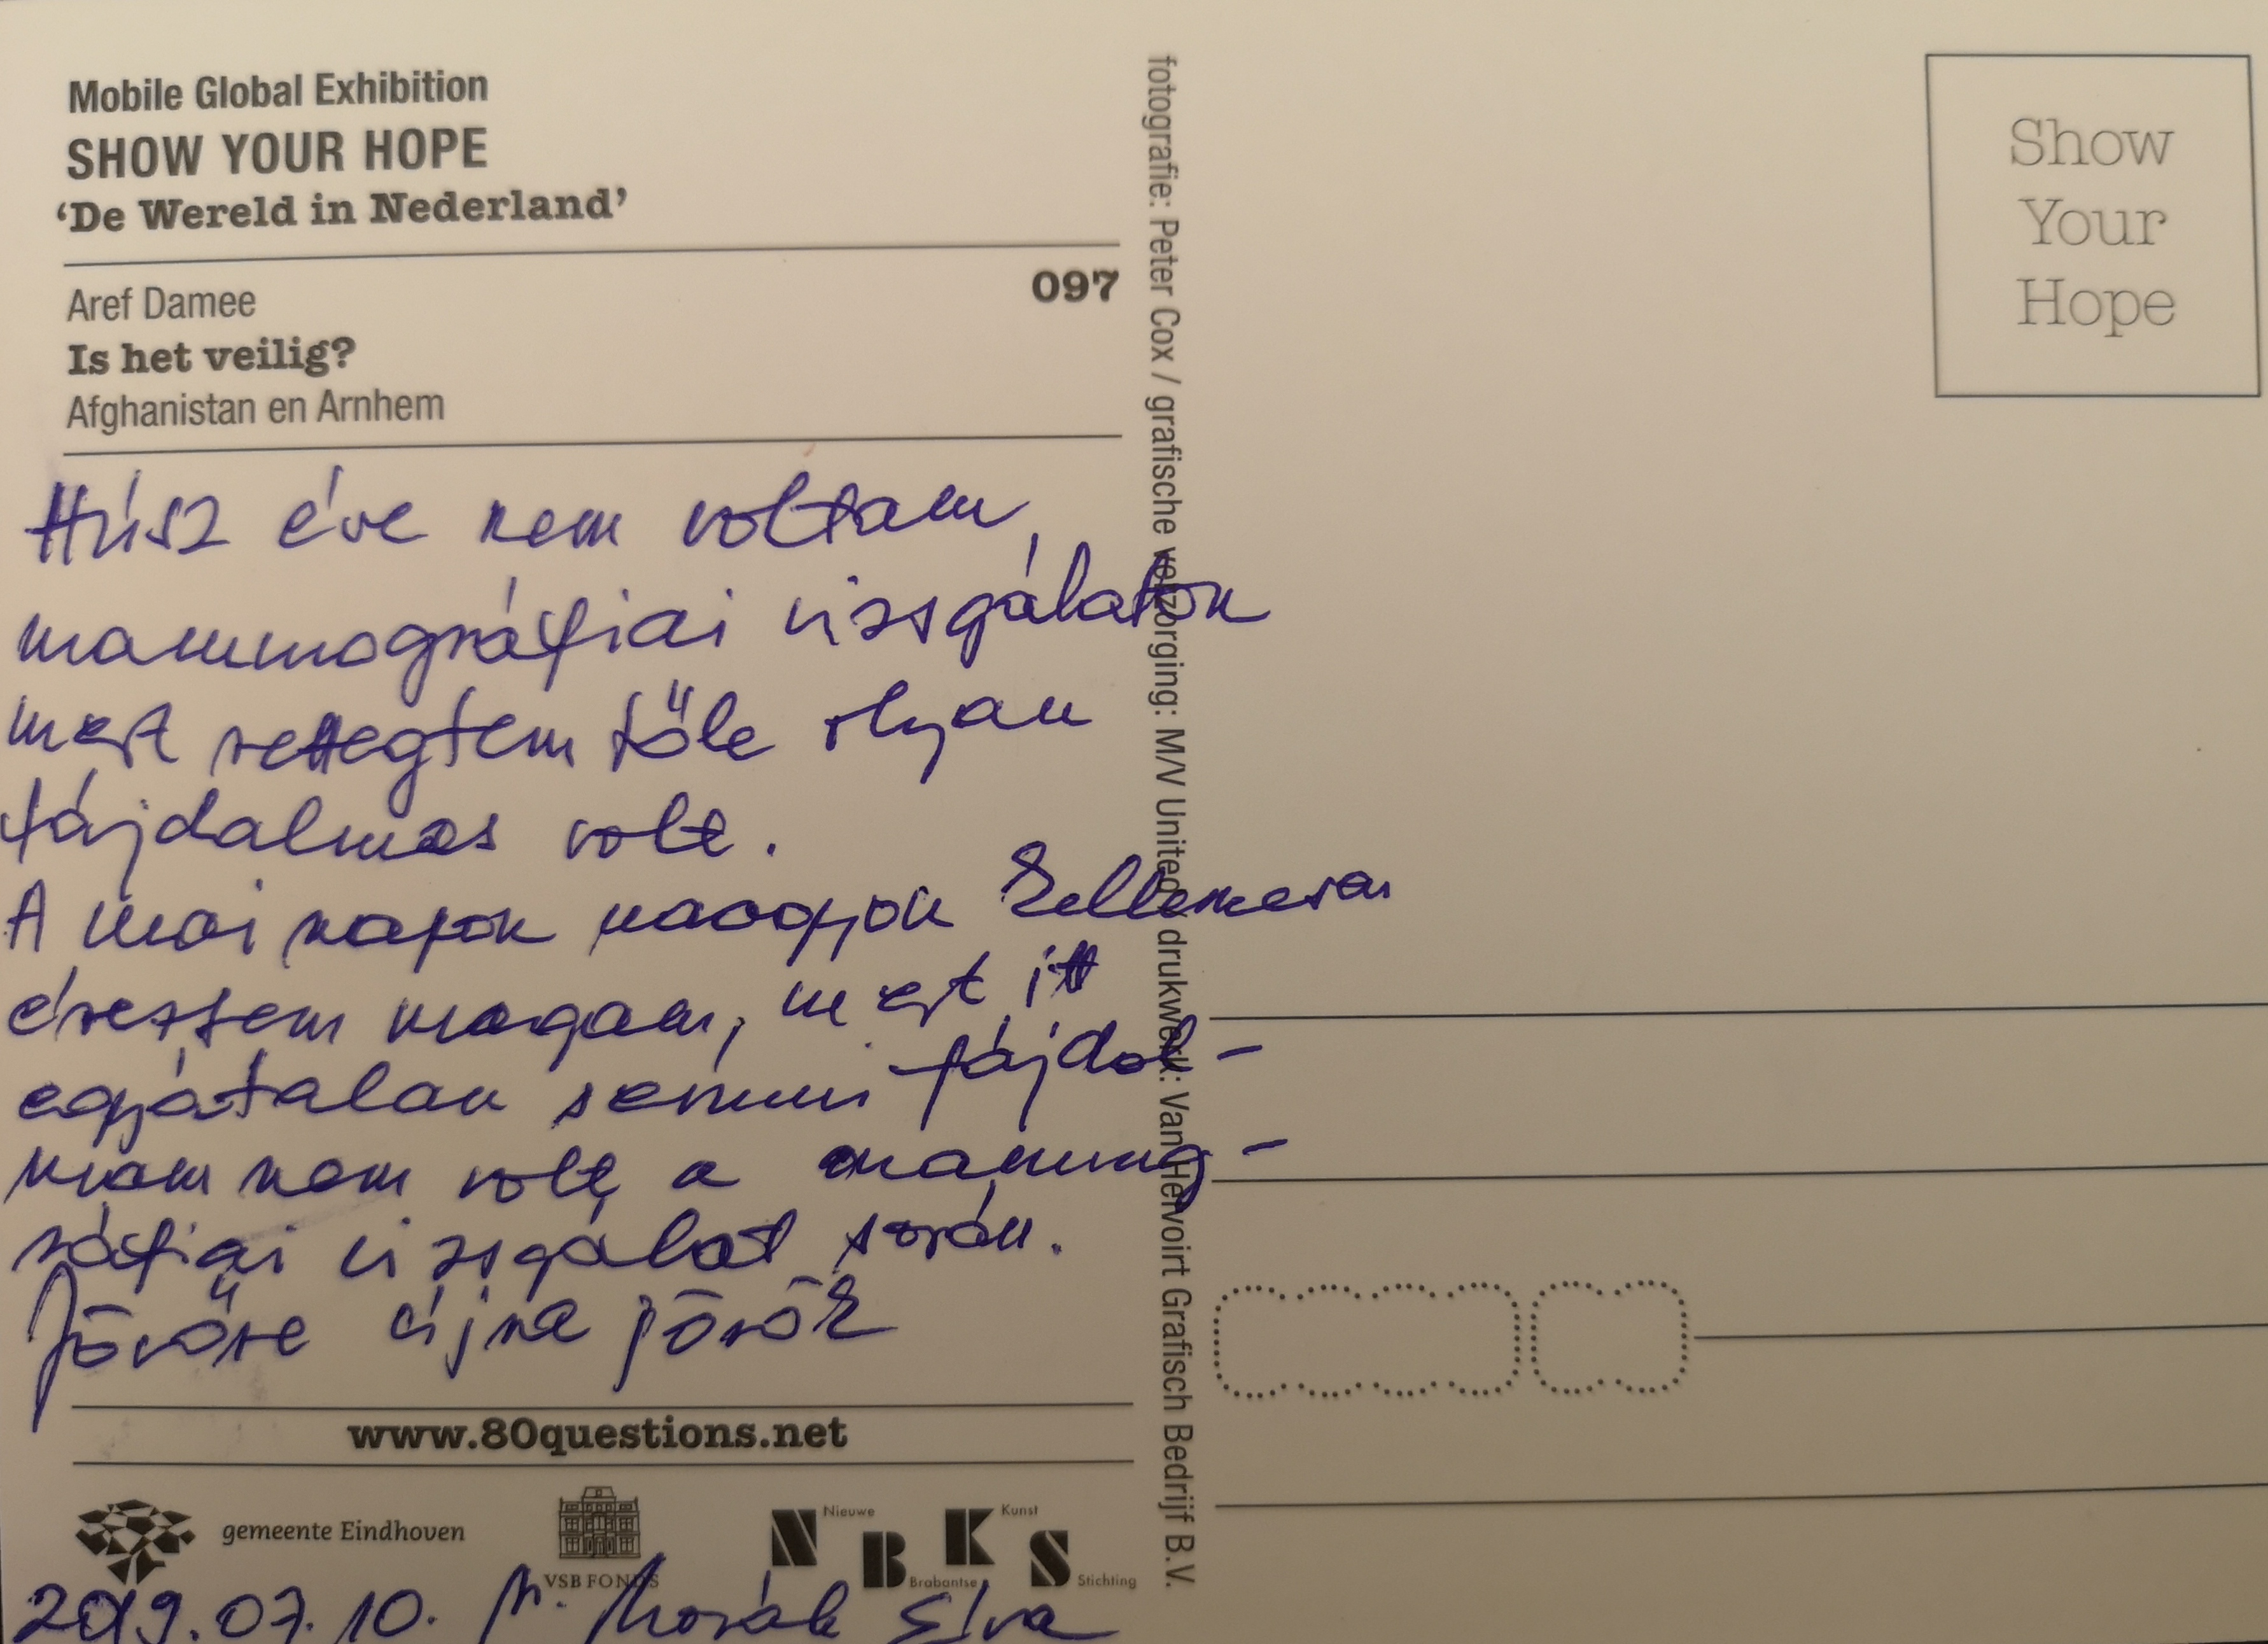 Mobile Global Exhibition
SHOW YOUR HOPE
‘De Wereld in Nederland’
097
Aref Damee
Is het veilig?
Afghanistan en Arnhem
Húsz éve nem voltam
mammográfiai vizsgálaton
mert rettegtem tőle olyan
fájdalmas volt.
A mai napon nagyon kellemesen
éreztem magam, mert itt
egyátalan semmi fájdal-
mam nem volt a mammog-
ráfiai vizsgálat során.
Jövőre újra jövök
www.80questions.net
gemeente Eindhoven
VSB FONDS
Nieuwe
Brabantse
Kunst
Stichting
NBKS
2019.07.10.
fotografie: Peter Cox / grafische verzorging: M/V United / drukwerk: Van Hervoirt Grafisch Bedrijf B.V.
Show
Your
Hope